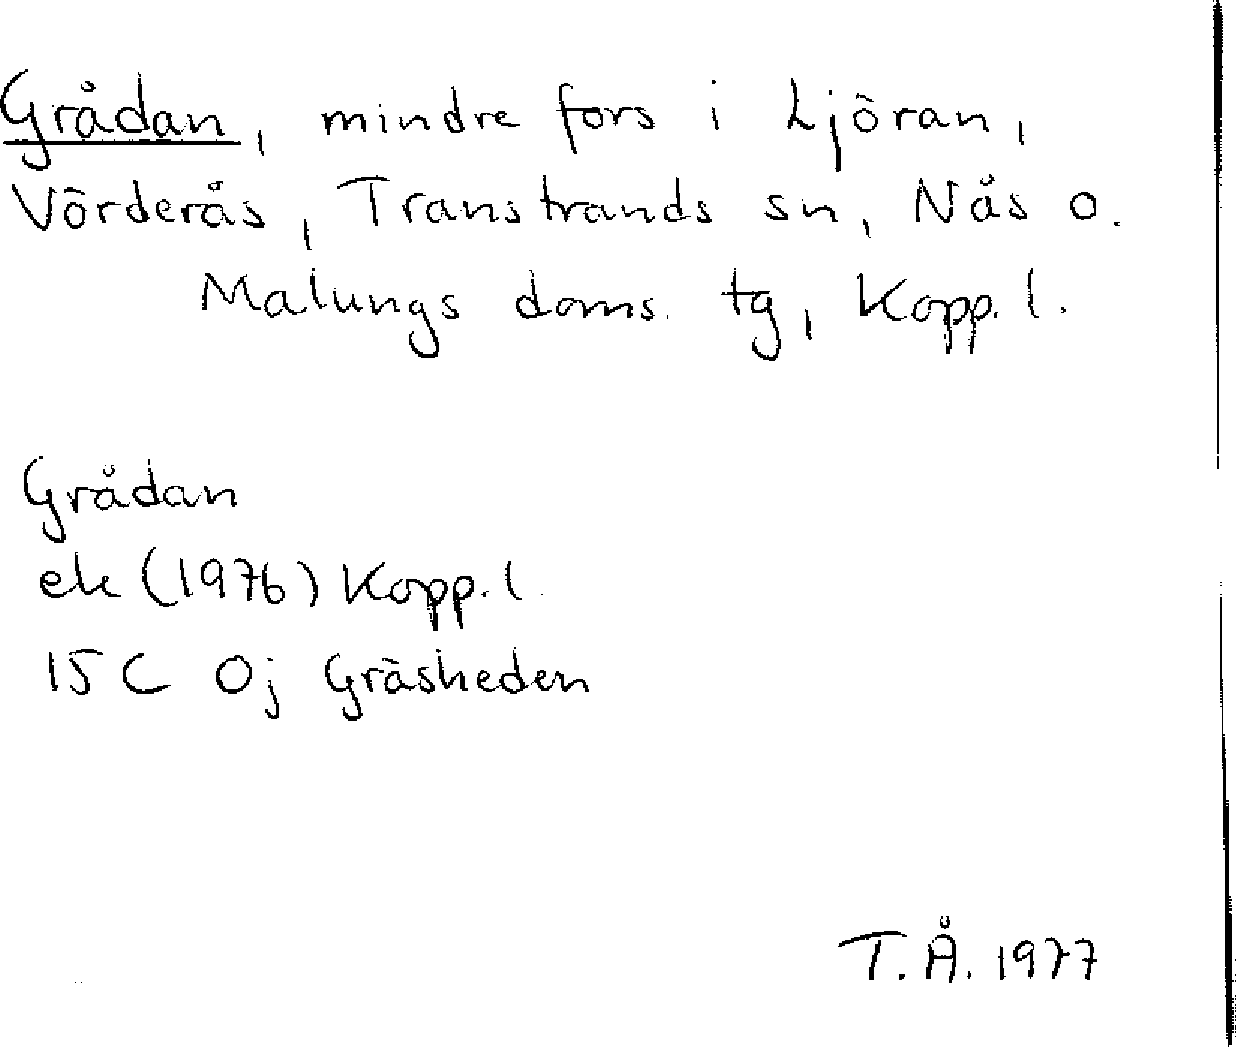 Grådan, mindre fors i Ljöran,
Vörderås, Transtrands sn, Nås o.
Malungs doms. tg, Kopp. l.
Grådan
ek (1976) Kopp. l.
15 C 0j Gräsheden
T.Å. 1977